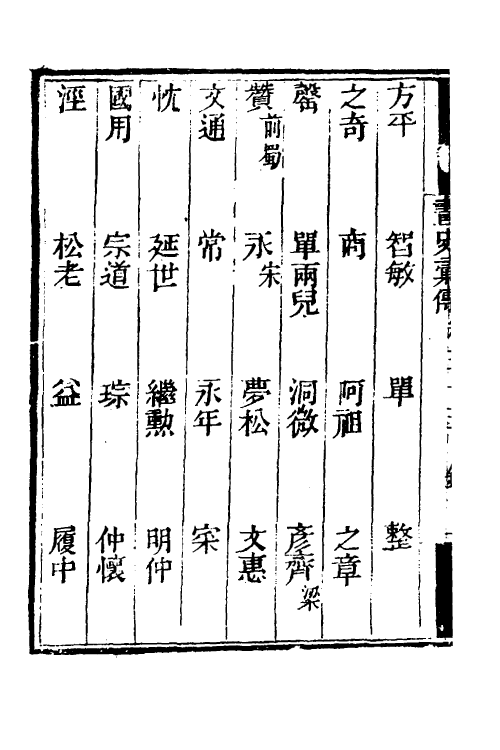 畫史彙傳
方平　智敏　單　整
之奇　商　阿祖　之章
罄　單兩兒　洞微　彥齊梁
贊前蜀　永宋　夢松　文惠
文通　常　永年　宋
忱　延世　繼勲　明仲
國用　宗道　琮　仲懷
涇　松老　益　履中